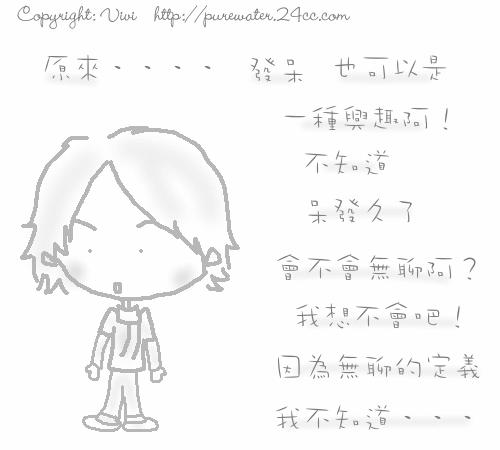 Copyright: Vivi http://purewater.24cc.com
原來・・・・ 發呆 也可以是
一種興趣阿！
不知道
呆發久了
會不會無聊阿？
我想不會吧！
因為無聊的定義
我不知道・・・